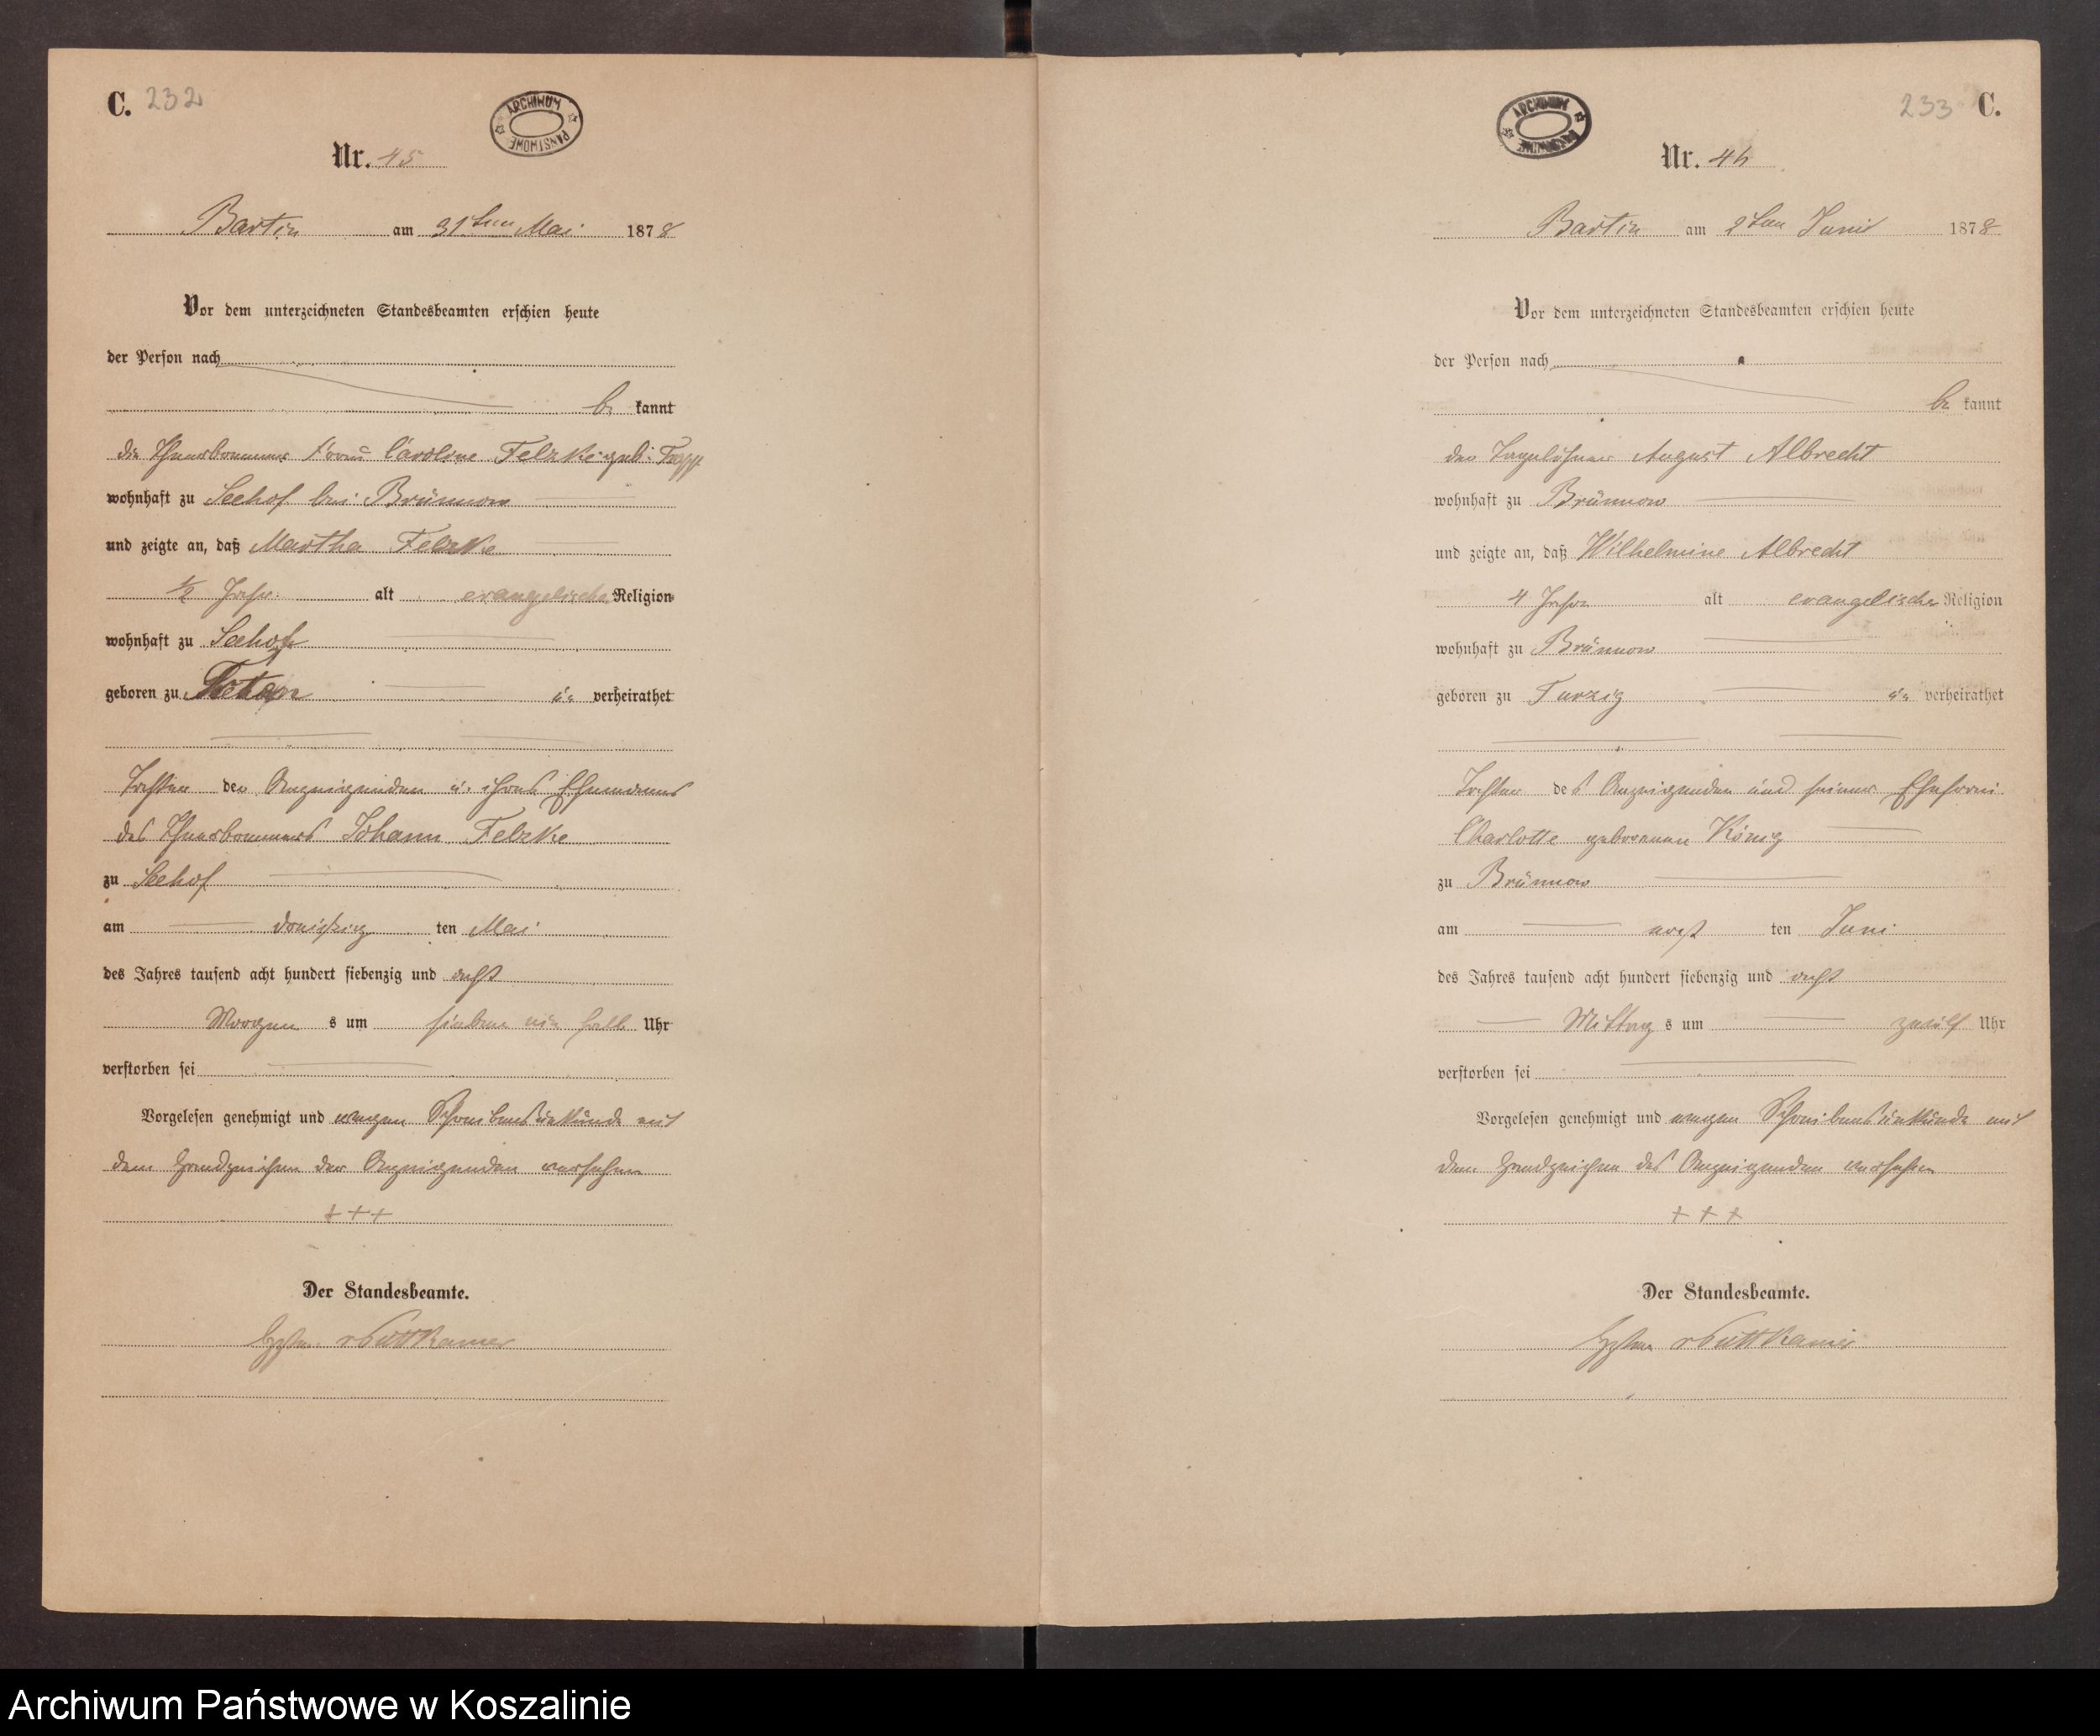 C. 232
ARCHIWUM PAŃSTWOWE
Nr. 45
Bartin am 31ten Mai 1878
Vor dem unterzeichneten Standesbeamten erschien heute
der Person nach
be kannt
die Frau Caroline Felzke geb:
wohnhaft zu Seehof bei Brünnow
und zeigte an, daß Martha Felzke
1/2 Jahr alt evangelischer Religion
wohnhaft zu Seehof
geboren zu un verheirathet
Tochter der Anzeigenden u. ihres Ehemannes
des Johann Felzke
zu Seehof
am dreißig ten Mai
des Jahres tausend acht hundert siebenzig und acht
Morgen s um sieben ein halb Uhr
verstorben sei
Vorgelesen genehmigt und wegen Schreibensunkunde mit
dem Handzeichen der Anzeigenden versehen
+++
Der Standesbeamte.
v Puttkamer
233 C.
ARCHIWUM PAŃSTWOWE
Nr. 46
Bartin am 2ten Juni 1878
Vor dem unterzeichneten Standesbeamten erschien heute
der Person nach
be kannt
der Tagelöhner August Albrecht
wohnhaft zu Brünnow
und zeigte an, daß Wilhelmine Albrecht
4 Jahr alt evangelischer Religion
wohnhaft zu Brünnow
geboren zu Turzig un verheirathet
Tochter des Anzeigenden und seiner Ehefrau
Charlotte geborenen König
zu Brünnow
am erst ten Juni
des Jahres tausend acht hundert siebenzig und acht
Mittag s um zwölf Uhr
verstorben sei
Vorgelesen genehmigt und wegen Schreibensunkunde mit
dem Handzeichen des Anzeigenden versehen
+ + +
Der Standesbeamte.
v Puttkamer
Archiwum Państwowe w Koszalinie